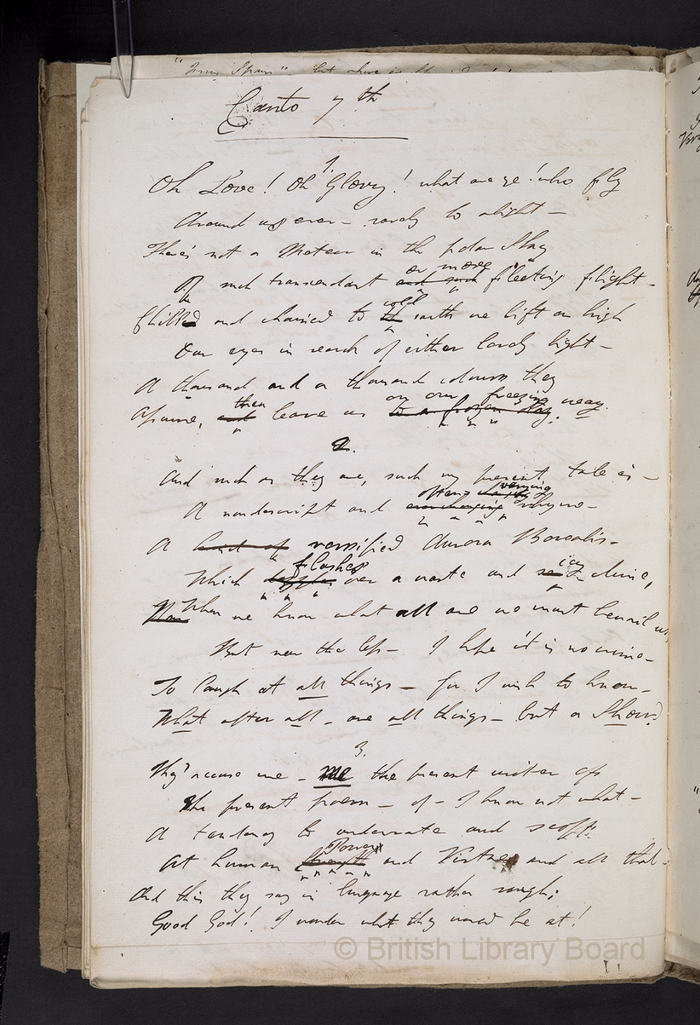 Canto 7th
1.
Oh Love! Oh Glory! what are ye! who fly
Around us ever— rarely to alight—
There's not a Meteor in the polar Sky
Of such transcendant and such or more fleeting flight—
Chilled and chained to the cold earth we lift on high
Our eyes in search of either lovely light—
A thousand and a thousand colours they
Assume, and then leave us to a frozen on our freezing way.
2.
And such as they are, such my present tale is—
A nondescript and ever changing ever varying rhyme—
A kind of versified Aurora Borealis—
Which flashes over a waste and icy clime,
When we know what all are we must bewail us,
But ne'er the less— I hope it is no crime—
To laugh at all things— for I wish to know—
What after all— are all things— but a Show?
3.
They accuse me— me the present writer of
The present poem— of— I know not what—
A tendency to underrate and scoff
At human Power and Virtue and all that;
And this they say in language rather rough;
Good God! I wonder what they would be at!
© British Library Board